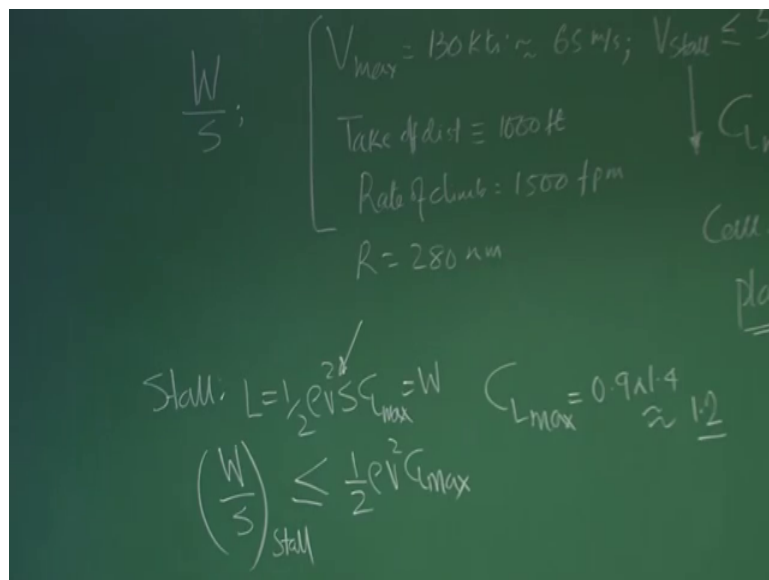 W/S; V_max = 130 kts ≈ 65 m/s; V_stall ≤ 5
Take of dist ≡ 1000 ft
C_L
Rate of climb = 1500 fpm
R = 280 nm
Stall: L = 1/2 ρV²S C_Lmax = W C_Lmax = 0.9 x 1.4
≈ 1.2
(W/S)_Stall ≤ 1/2 ρV² C_Lmax